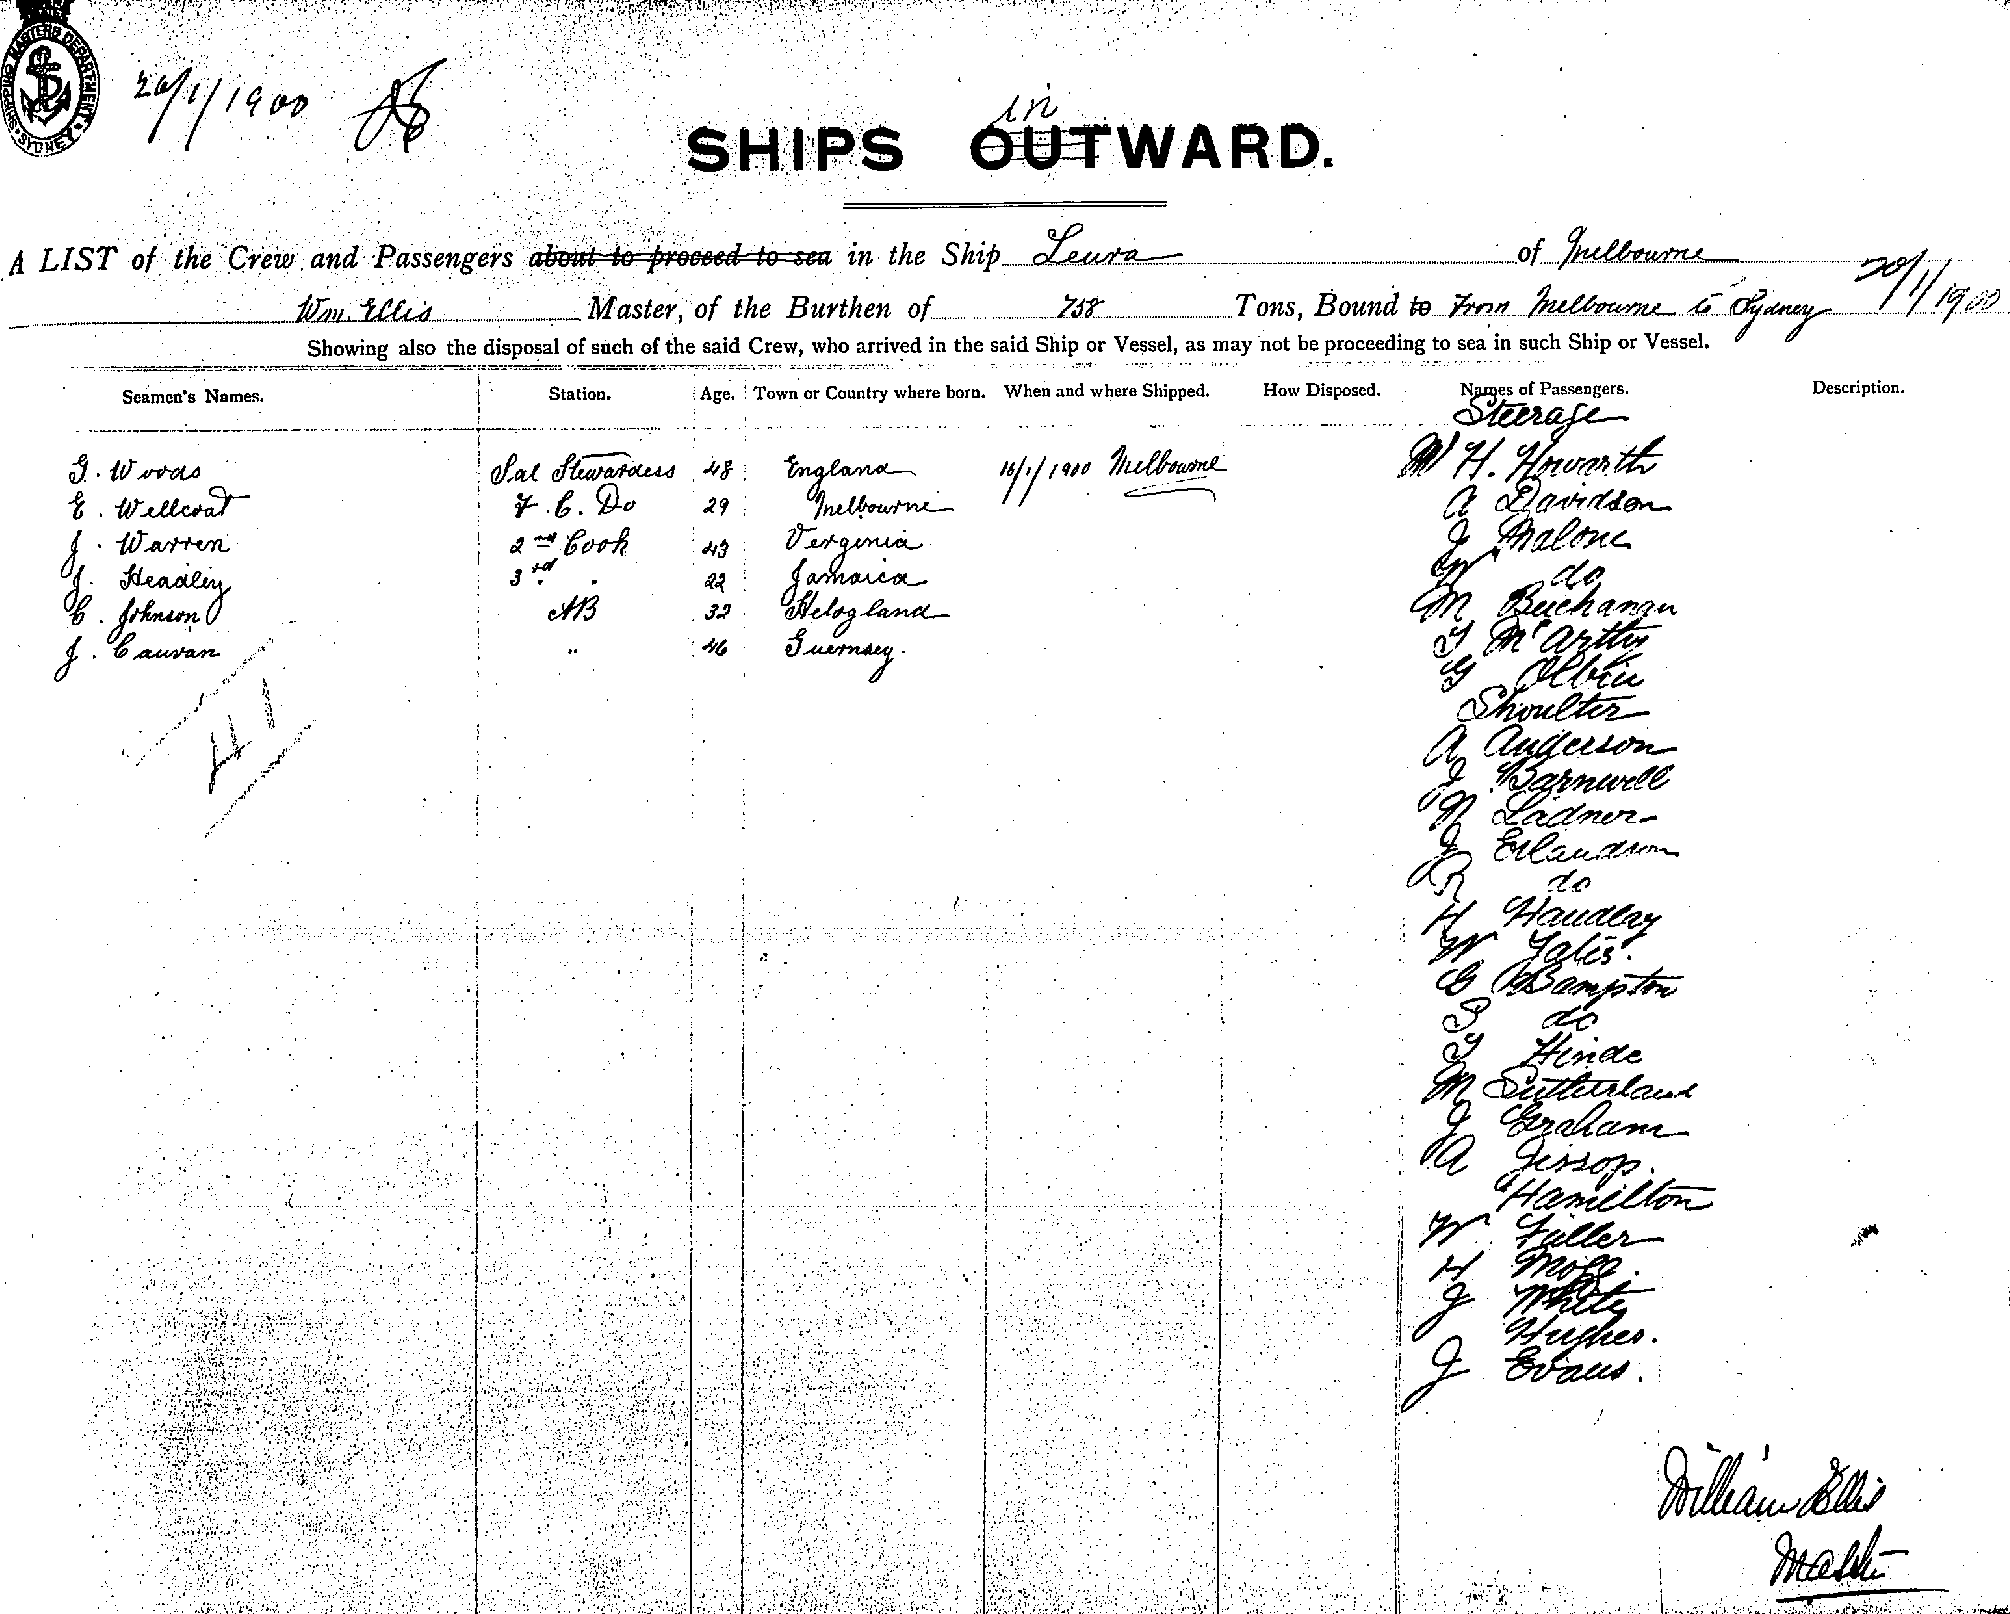 SHIPPING MASTERS DEPARTMENT SYDNEY
20/1/1900
in
SHIPS OUTWARD.
A LIST of the Crew and Passengers about to proceed to sea in the Ship Leura of Melbourne 20/1/1900
Wm. Ellis Master, of the Burthen of 758 Tons, Bound to From Melbourne to Sydney
Showing also the disposal of such of the said Crew, who arrived in the said Ship or Vessel, as may not be proceeding to sea in such Ship or Vessel.
Seamen's Names. Station. Age. Town or Country where born. When and where Shipped. How Disposed. Names of Passengers. Description.
Steerage
G. Woods Sal Stewardess 48 England 16/1/1900 Melbourne
E. Wellcoat F. C. Do 29 Melbourne
J. Warren 2nd Cook 43 Verginia
J. Headley 3rd " 22 Jamaica
C. Johnson AB 32 Helogland
J. Cauvan " 46 Guernsey.
41
W H. Howarth
A Davidson
J Malone
W do
M Buchanan
T McArthur
G Olbin
Shoulter
A Anderson
J Barnwell
N Ladner
J Erlandson
R do
H Handley
W Yates.
G Bampton
S do
T Hinde
M Sutherland
J Graham
A Jessop.
Hamilton
W Fuller
H Moff.
J White
Hughes.
J Evans.
William Ellis
Master